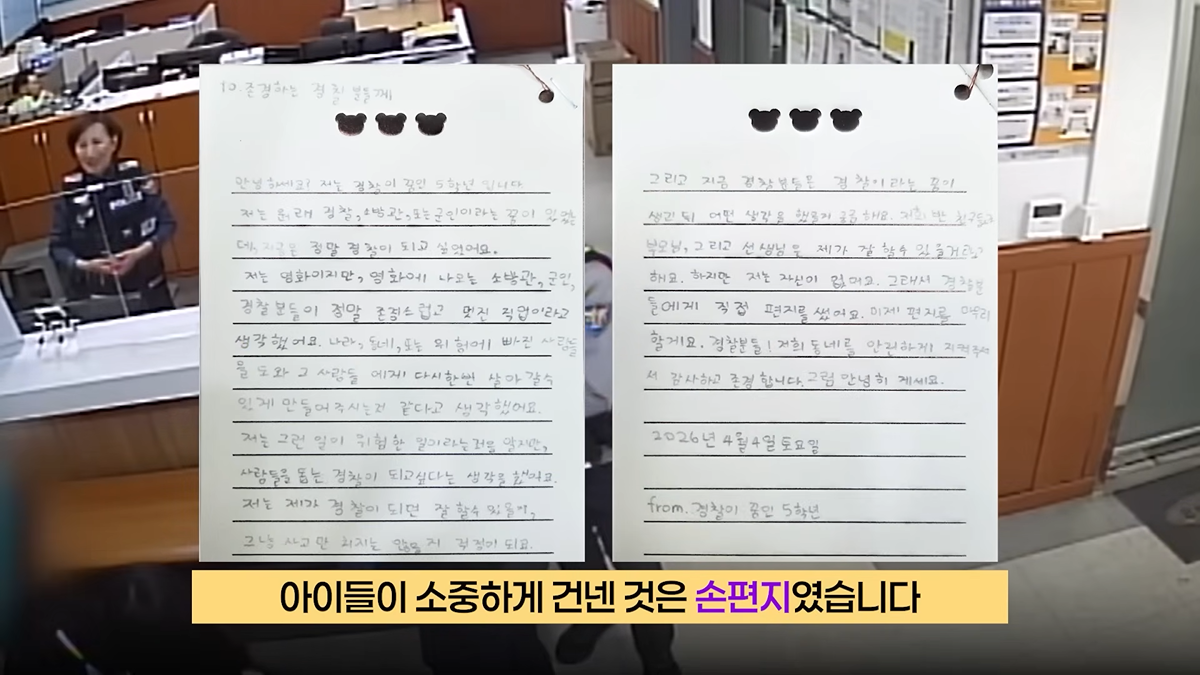 To.존경하는 경찰 분들께
안녕하세요? 저는 경찰이 꿈인 5학년 입니다
저는 원래 경찰,소방관,또는군인이라는 꿈이 있었는
데, 지금은 정말 경찰이 되고 싶었어요.
저는 영화이지만, 영화에 나오는 소방관,군인,
경찰분들이 정말 존경스럽고 멋진 직업이라고
생각했어요. 나라, 동네, 또는 위험에 빠진 사람들
을 도와 그 사람들 에게 다시한번 살아 갈수
있게 만들어주시는거 같다고 생각했어요.
저는 그런 일이 위험한 일이라는것을 알지만,
사람들을 돕는 경찰이 되고싶다는 생각을 했어요.
저는 제가 경찰이 되면 잘 할수 있을지,
그냥 사고만 치지는 않을지 걱정이 되요.
그리고 지금 경찰분들은 경찰이라는 꿈이
생긴 뒤 어떤 생각을 했을지 궁금해요. 저희 반 친구들과
부모님, 그리고 선생님은 제가 잘 할수 있을거라고
해요. 하지만 저는 자신이 없어요. 그래서 경찰분
들에게 직접 편지를 썼어요. 이제 편지를 마무리
할게요. 경찰분들! 저희 동네를 안전하게 지켜주셔
서 감사하고 존경합니다. 그럼 안녕히 계세요.
2026년 4월 4일 토요일
from. 경찰이 꿈인 5학년
아이들이 소중하게 건넨 것은 손편지였습니다